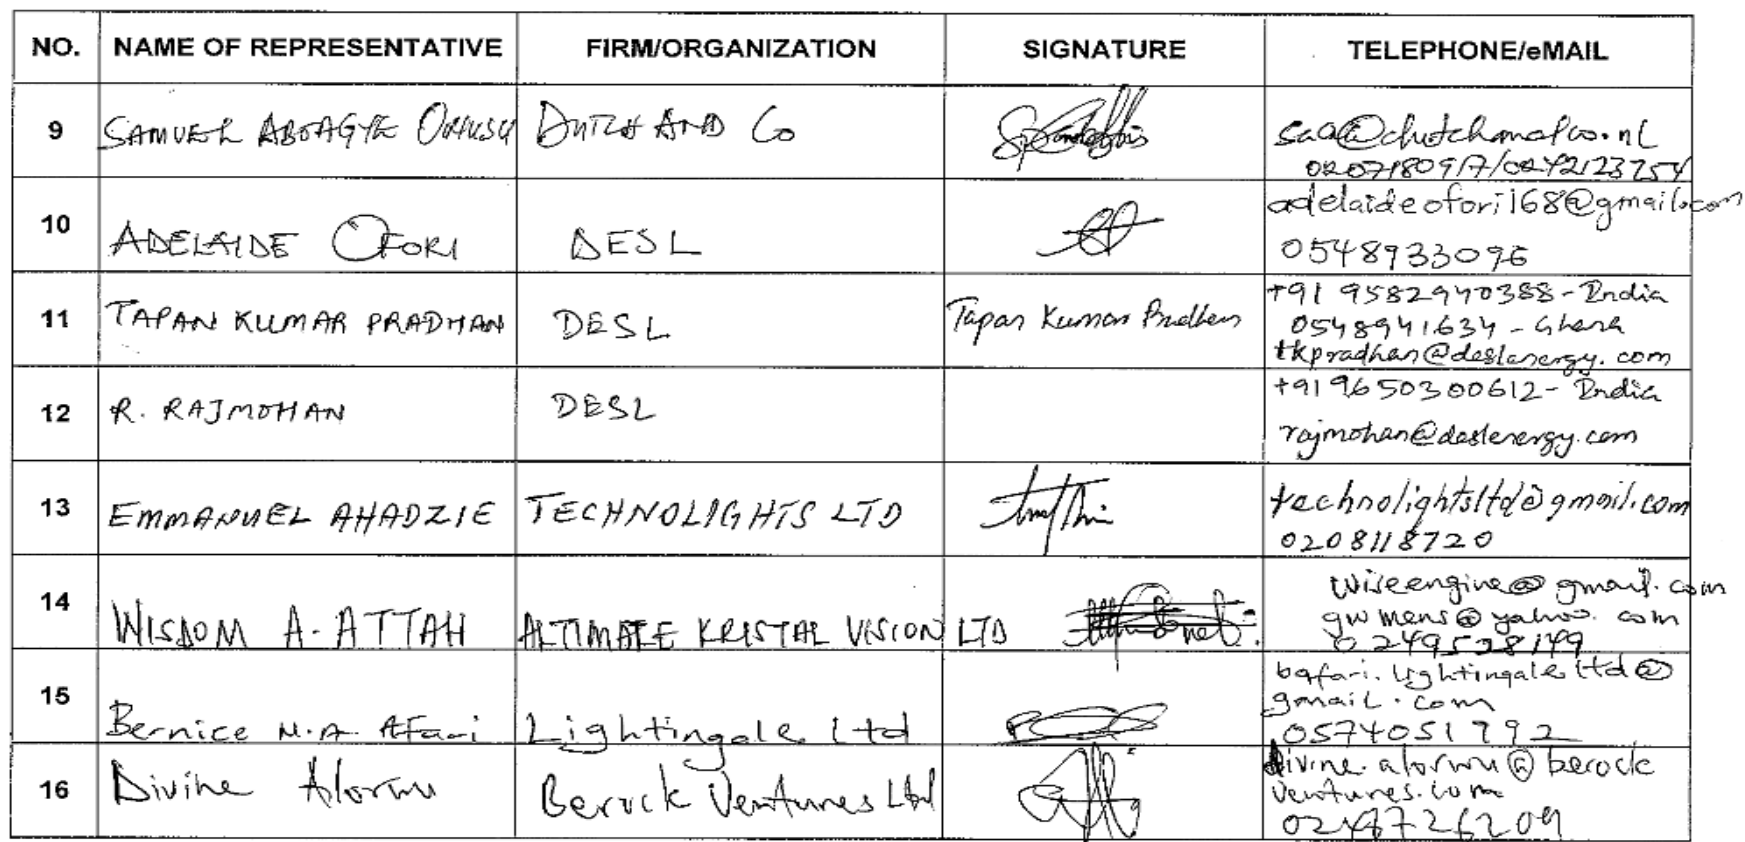 NO. NAME OF REPRESENTATIVE FIRM/ORGANIZATION SIGNATURE TELEPHONE/eMAIL
9 SAMUEL ABOAGYE DUTCH AND Co
0207180917/0242123754
10 ADELAIDE OFORI DESL adelaideofori168@gmail.com
0548933096
11 TAPAN KUMAR PRADHAN DESL Tapan Kumar Pradhan +91 9582940388 - India
0548941634 - Ghana
tkpradhan@deslenergy.com
12 R. RAJMOHAN DESL +91 9650300612 - India
rajmohan@deslenergy.com
13 EMMANUEL AHADZIE TECHNOLIGHTS LTD technolightsltd@gmail.com
0208118720
14 WISDOM A. ATTAH ALTIMATE KRISTAL VISION LTD wiseengine@gmail.com
gwmens@yahoo.com
0249528149
15 Bernice N.A Afari Lightingale Ltd bafari.lightingaleltd@
gmail.com
05574051792
16 Divine Alormu Berock Ventures Ltd divine.alormu@berock
ventures.com